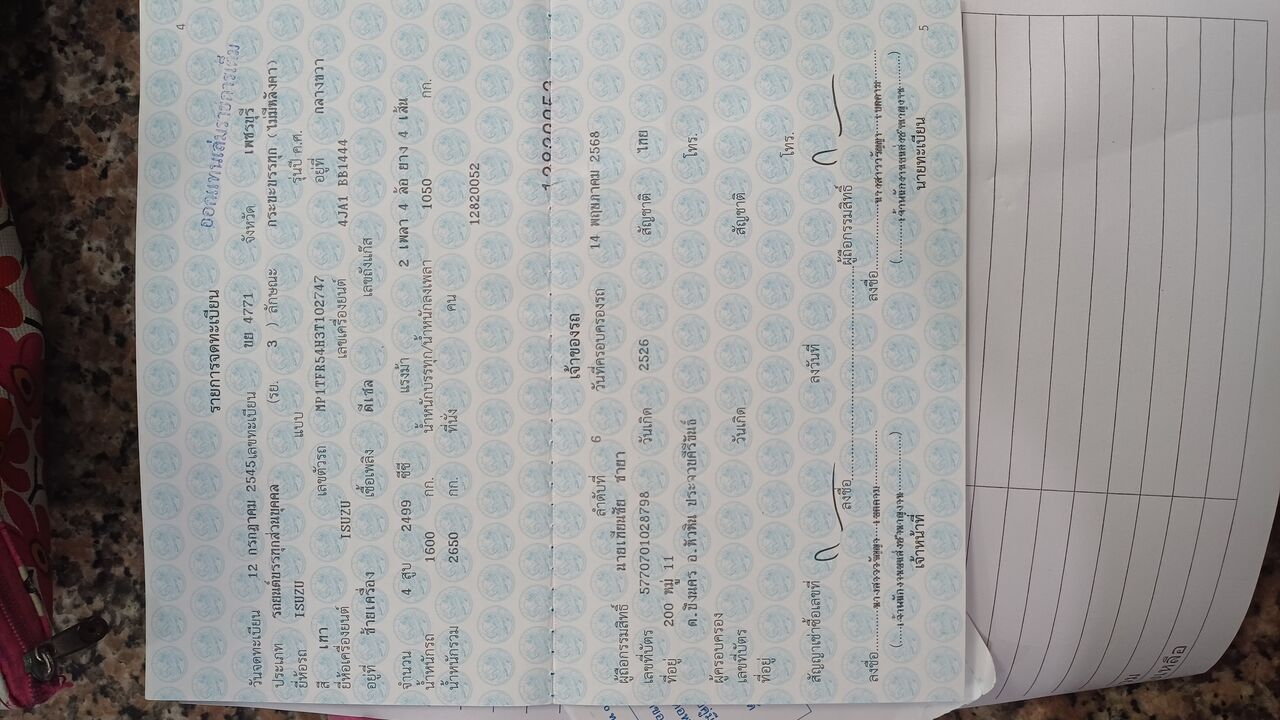 4
ออกแทนเล่มรายการเต็ม
รายการจดทะเบียน
วันจดทะเบียน 12 กรกฎาคม 2545 เลขทะเบียน ขย 4771 จังหวัด เพชรบุรี
ประเภท รถยนต์บรรทุกส่วนบุคคล (รย. 3 ) ลักษณะ กระบะบรรทุก (ไม่มีหลังคา)
ยี่ห้อรถ ISUZU แบบ รุ่นปี ค.ศ.
สี เทา เลขตัวรถ MP1TFR54H3T102747 อยู่ที่ กลางขวา
ยี่ห้อเครื่องยนต์ ISUZU เลขเครื่องยนต์ 4JA1 BB1444
อยู่ที่ ซ้ายเครื่อง เชื้อเพลิง ดีเซล เลขถังแก๊ส
จำนวน 4 สูบ 2499 ซีซี แรงม้า 2 เพลา 4 ล้อ ยาง 4 เส้น
น้ำหนักรถ 1600 กก. น้ำหนักบรรทุก/น้ำหนักลงเพลา 1050 กก.
น้ำหนักรวม 2650 กก. ที่นั่ง คน
12820052
เจ้าของรถ
ลำดับที่ 6 วันที่ครอบครองรถ 14 พฤษภาคม 2568
ผู้ถือกรรมสิทธิ์ นายเทียนชัย ชายา
เลขที่บัตร 5770701028798 วันเกิด 2526 สัญชาติ ไทย
ที่อยู่ 200 หมู่ 11
ต.บึงนคร อ.หัวหิน ประจวบคีรีขันธ์ โทร.
ผู้ครอบครอง
เลขที่บัตร วันเกิด สัญชาติ
ที่อยู่ โทร.
สัญญาเช่าซื้อเลขที่ ลงวันที่
ลงชื่อ ผู้ถือกรรมสิทธิ์
ลงชื่อ ลงชื่อ
เจ้าหน้าที่ นายทะเบียน
5